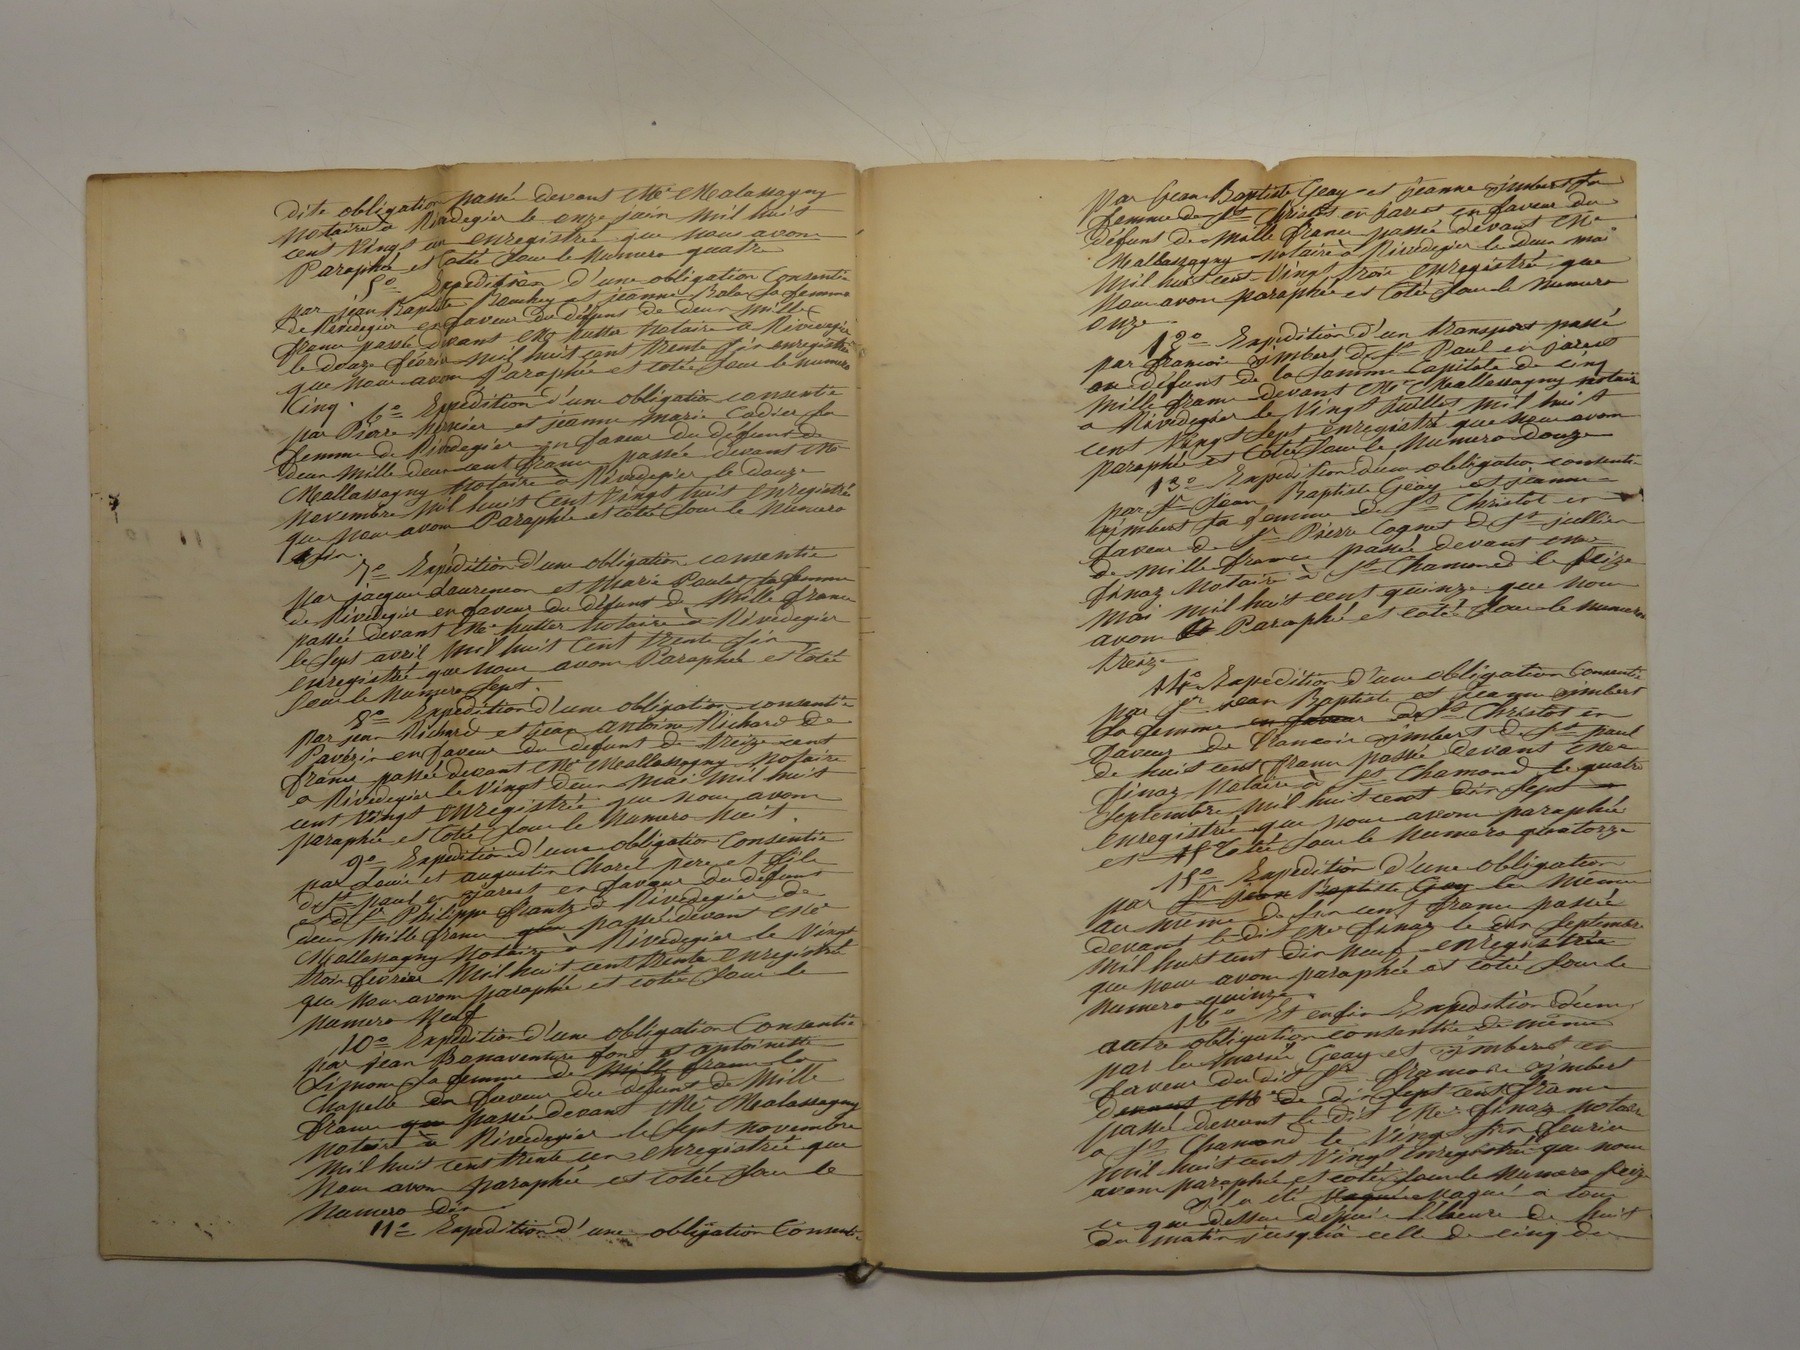 dite obligation passé devant Me Malassagny
notaire à Rivedegier le onze juin mil huit
cent vingt un enregistrée que nous avons
Paraphé et Coté sous le numero quatre
5o Expedition d'une obligation Consentie
par jean Baptiste et jeanne sa femme
de Rivedegier en faveur du défunt de deux mille
francs passé devant Me hutter Notaire à Rivedegier
le douze février mil huit cent trente six enregistrée
que nous avons Paraphée et cotée sous le numero
Cinq.
6o Expedition d'une obligation consentie
par Pierre et jeanne Marie Cadier sa
femme de Rivedegier en faveur du défunt de
deux mille deux cent francs passée devant Me
Mallassagny Notaire à Rivedegier le douze
novembre mil huit Cent Vingt huit Enregistrée
que nous avons Paraphée et cotée sous le Numero
six.
7o Expédition d'une obligation consentie
par jacque Laurencon et Marie Paulet sa femme
de Rivedegier en faveur du défunt de Mille francs
passée devant Me hutter Notaire à Rivedegier
le sept avril Mil huit Cent trente six
enregistrée que nous avons Paraphée et Cotée
sous le Numero sept.
8o Expedition d'une obligation consentie
par jean Richard et jean antoine Richard de
Pavézin en faveur du défunt de treize cent
francs passée devant Me Mallassagny Notaire
a Rivedegier le Vingt deux mai Mil huit
cent vingt enregistrée que nous avons
paraphé et Cotée sous le Numero huit.
9o Expedition d'une obligation Consentie
par Louis et augustin Chorel père et fils
de St paul en jarest en faveur du défunt
et de Sr Philippe frantz de Rivedegier de
deux Mille francs que passée devant Me
Mallassagny Notaire à Rivedegier le Vingt
trois février Mil huit cent trente enregistrée
que Nous avons paraphé et cotée sous le
numero Neuf
10o Expedition d'une obligation Consentie
par jean Bonaventure font et antoinette
sa femme de Mille francs la
Chapelle en faveur du défunt de Mille
francs que passée devant Me Malassagny
notaire à Rivedegier le sept novembre
mil huit cent trente un enregistrée que
Nous avons paraphé et cotée sous le
Numero dix.
11o Expedition d'une obligation Consentie
par jean Baptiste Geay et jeanne Imbert sa
femme de St Christot en jarest en faveur du
défunt de mille francs passée devant Me
Mallassagny Notaire à Rivedegier le deux mai
mil huit cent vingt trois enregistrée que
Nous avons paraphée et Cotée sous le Numero
onze.
12o Expedition d'un transport passé
par francois Imbert de St Paul en jarest
au défunt de la somme capitale de cinq
mille francs devant Me Mallassagny notaire
a Rivedegier le Vingt juillet mil huit
cent Vingt Sept enregistré que Nous avons
paraphé et Coté sous le Numero douze
13o Expedition d'une obligation consentie
par Sr jean Baptiste Geay et jeanne
Imbert sa femme de St Christot en
faveur de Sr Pierre Cognet de St jullien
de mille francs passée devant Me
finaz Notaire à St Chamond le seize
mai mil huit cent quinze que Nous
avons Paraphé et cotée sous le numero
treize
14o Expedition d'une obligation Consentie
par Sr jean Baptiste et jeanne Imbert
sa femme en faveur de St Christot en
faveur de francois Imbert de St paul
de huit cent francs passée devant Me
finaz Notaire à St Chamond le quatre
septembre mil huit cent dix sept
enregistrée que nous avons paraphée
et Cotée sous le Numero quatorze
15o Expedition d'une obligation
par Sr jean Baptiste Geay les même
au même de six cent francs passée
devant le dit Me finaz le dix septembre
mil huit cent dix neuf enregistrée
que nous avons paraphée et cotée sous le
numero quinze
16o Et enfin Expedition d'une
autre obligation consentie de même
par les mariés Geay et Imbert en
faveur du dit Sr francois Imbert
devant Me de dix sept cent francs
passée devant le dit Me finaz notaire
a St Chamond le Vingt six fevrier
mil huit cent Vingt enregistrée que nous
avons paraphé et cotée sous le numero seize
Il a été vaqué vaqué a tout
ce que dessus depuis l'heure de huit
du matin jusqu'à celle de cinq du